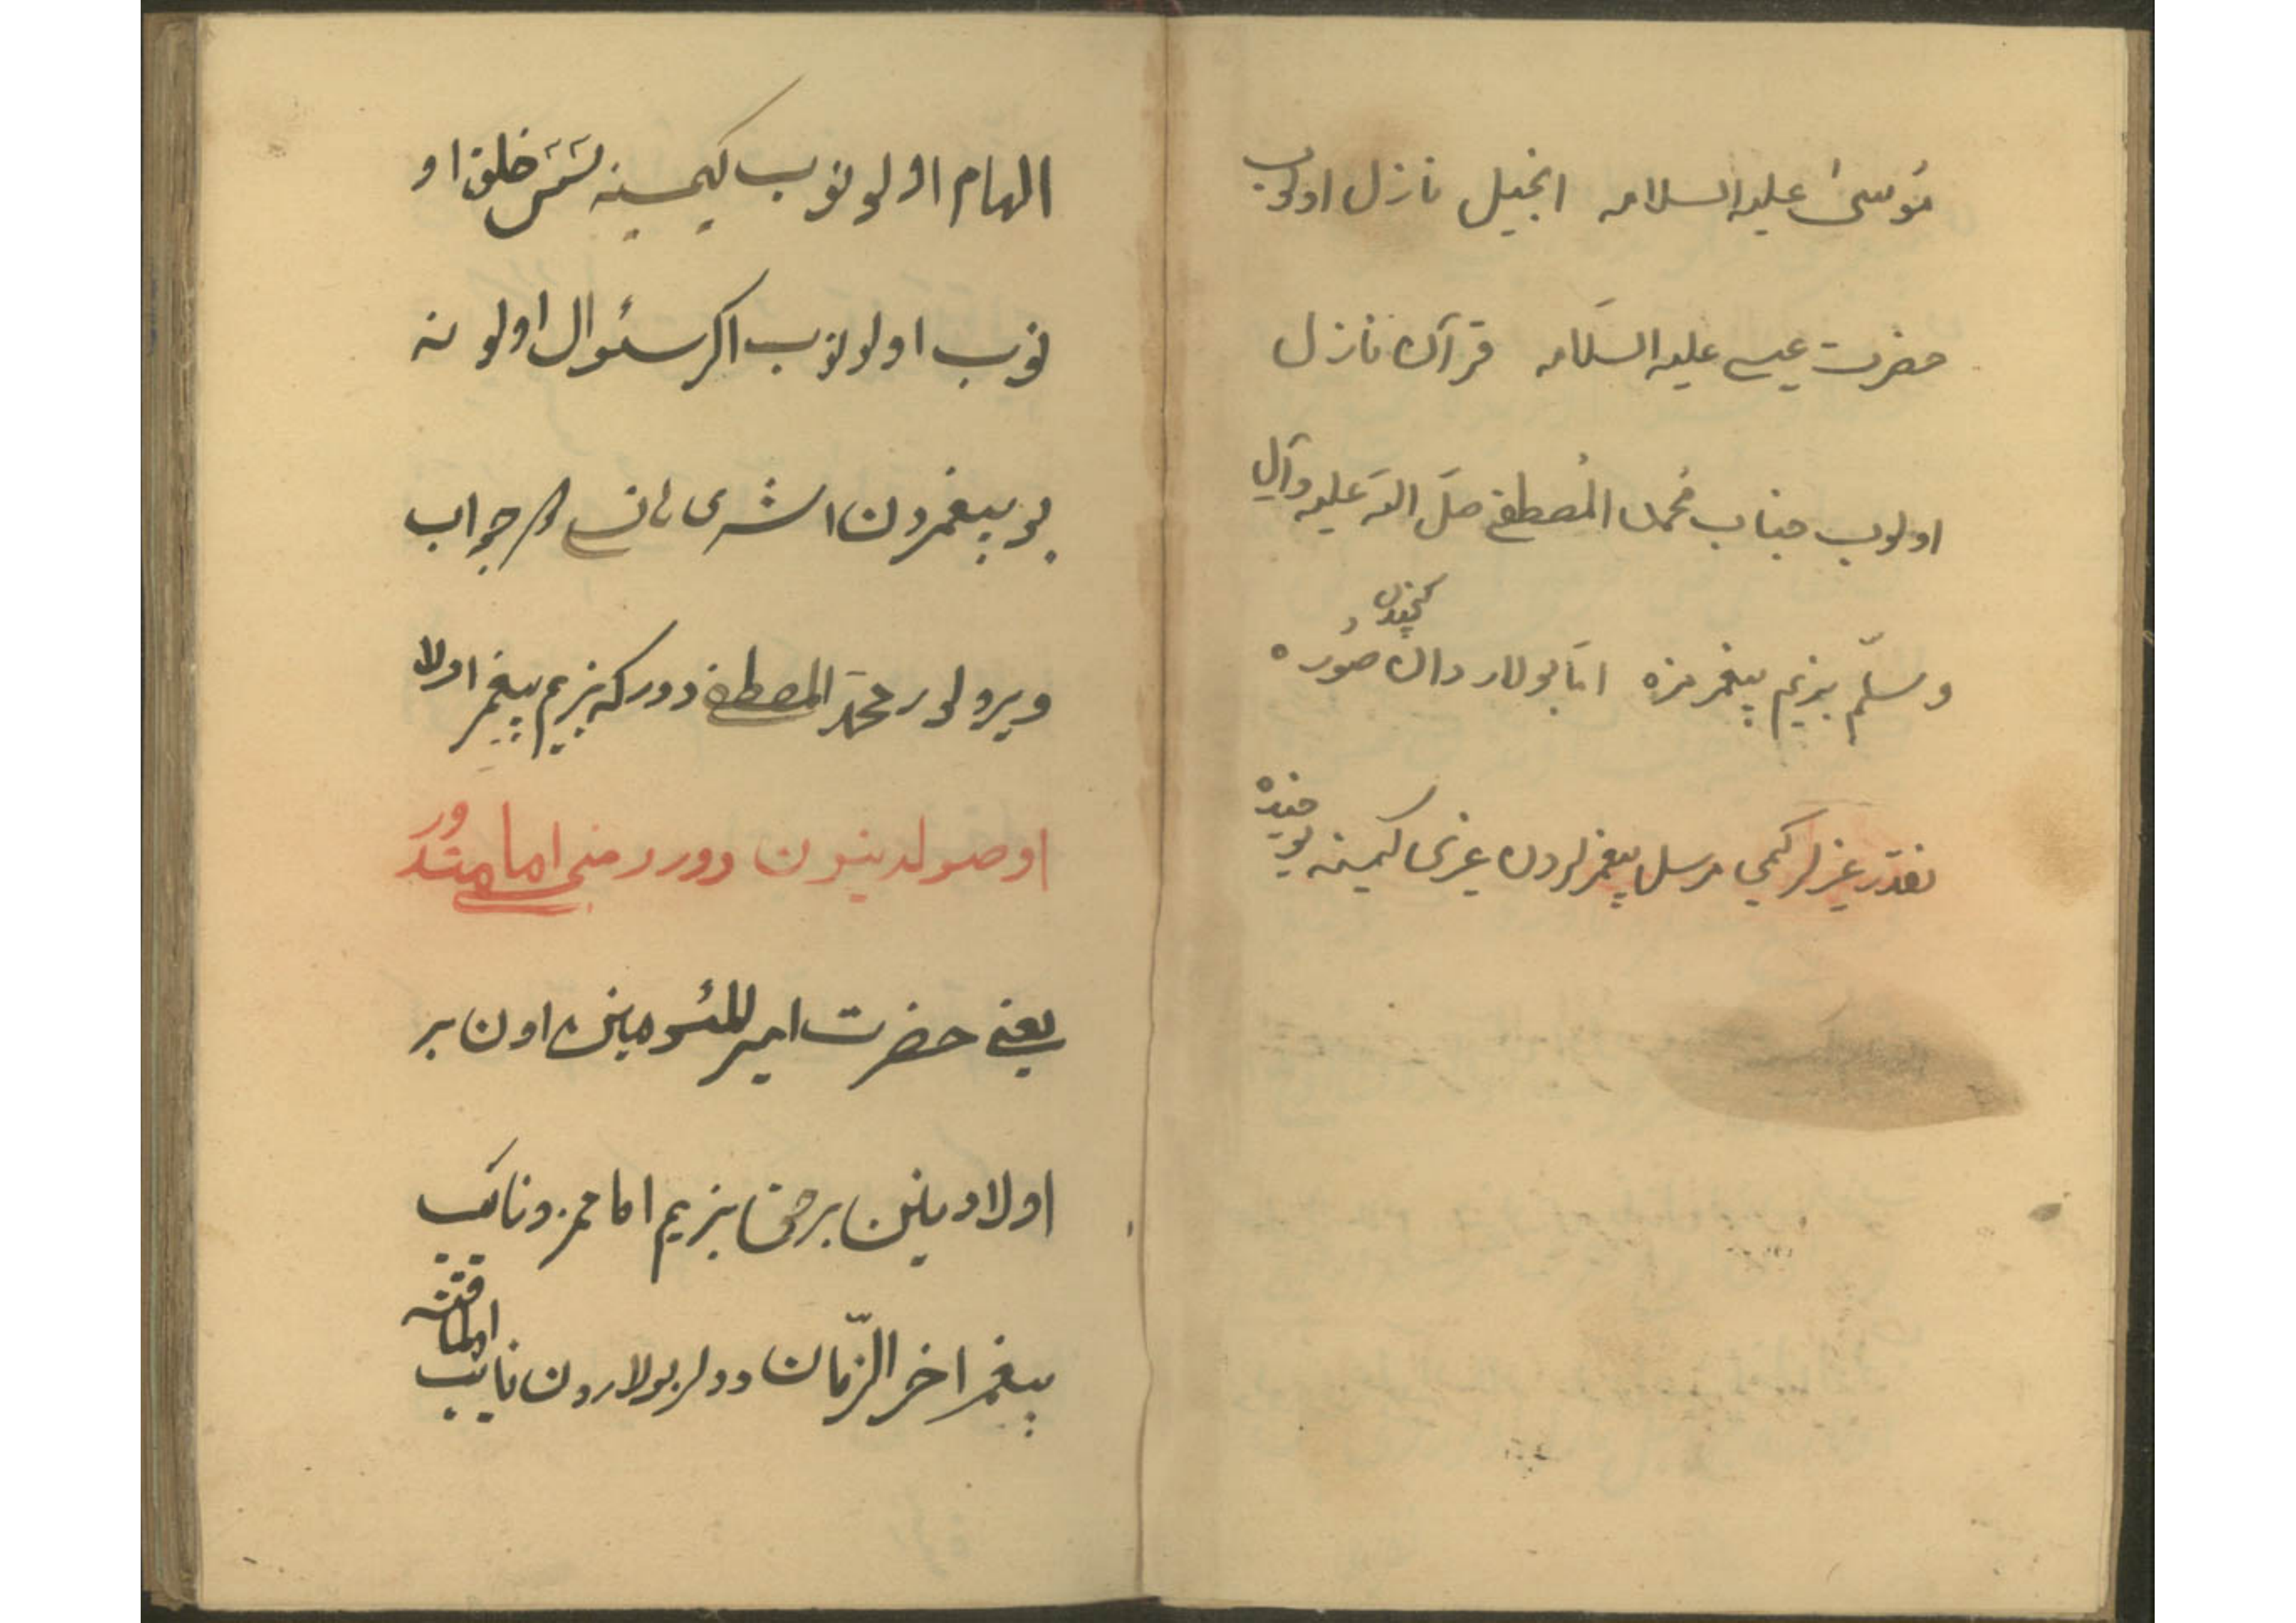 موسیٰ علیه السلامه انجیل نازل اولوب
حضرت عیسی علیه السلامه قرآن نازل
اولوب جناب محمد المصطفی صلّ الله علیه وآل
وسلّم بزیم پیغمبرمزه امّا بولار دان صوره
کچندن
نقدر غزلر کمی مرسل پیغمبرلردن غزی کیمینه
الهام اولونوب کیمسینه سَسَ خلق او
نوب اولونوب اکر سئوال اولو نه
بو پیغمردن اشری جواب
ویرولور محمد المصطفی دور که بزیم پیغمر اولا
اوصولدینون دوردرمنجی امامتدور
یعنی حضرت امیر المئومینن اون بر
اولادینن برحق بزیم امامز ونائب
پیغمر اخر الزّمان دولر بولاردن نائب